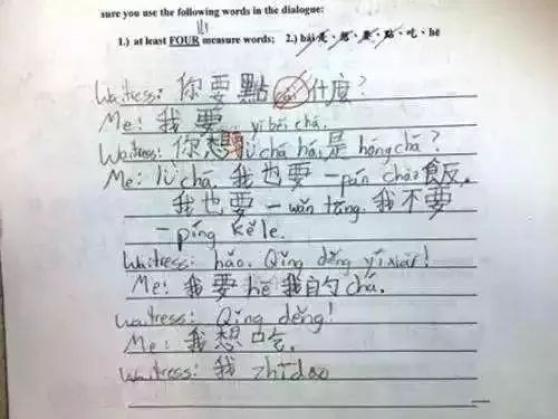 sure you use the following words in the dialogue:
1.) at least FOUR measure words; 2.) hái 是、想、要、點、吃、hē
Waitress: 你要點什麼?
Me: 我要 yì bēi chá.
Waitress: 你想 lǜ chá hái 是 hóng chá?
Me: lǜ chá. 我也要一 pán chǎo 飯.
我也要一 wǎn tāng. 我不要
一 píng kě lè.
Waitress: hǎo. Qǐng děng yí xiàr!
Me: 我要 hē 我的 chá.
Waitress: Qǐng děng!
Me: 我想吃.
Waitress: 我 zhīdao